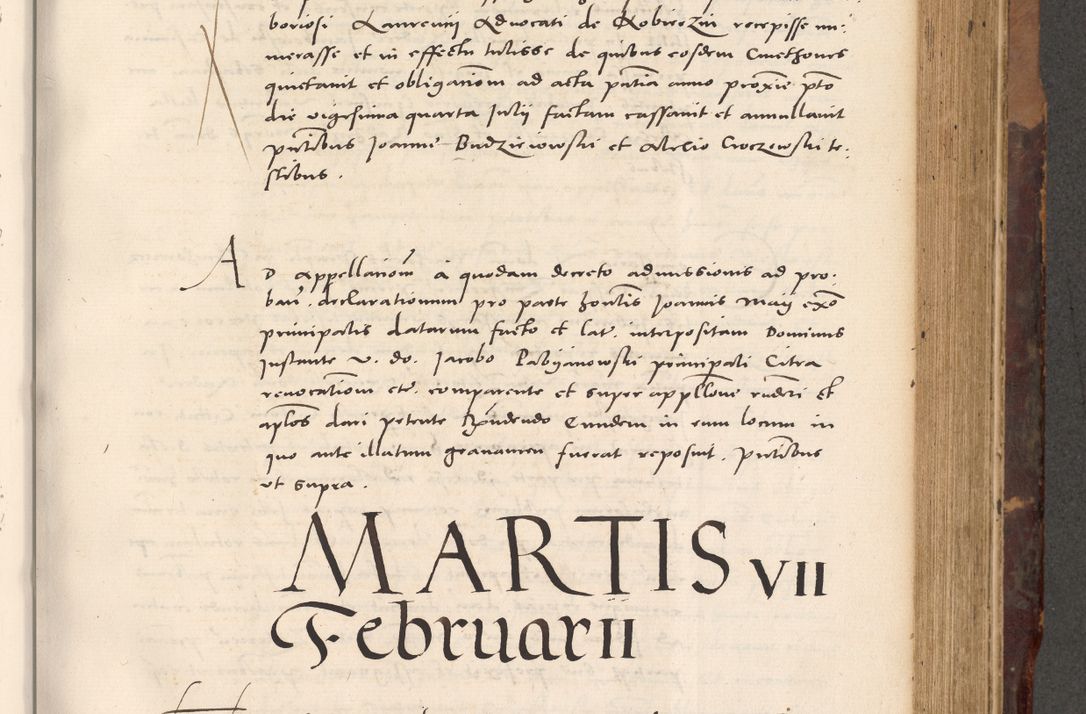 boriosi Laurencii Advocati de Kobierzin recepisse nu⸗
merasse et in effectu tulisse de quibus eosdem Cmethones
quietavit et obligationem ad acta prntia anno proxie pto
die vigesima quarta Julii factam cassavit et annullavit
pntibus Joanne Budziejowski et Alexio Croczewski te⸗
stibus.
AD appellationem a quodam decreto admissionis ad pro⸗
ban. declarationum pro parte hontis Joannis Maij exo
principalis datarum facto et lat. interpositam Dominus
instante v. do. Jacobo Pabyanowski principali Citra
revocationem etc. comparente et super appllone rnderi et
aplos dari petente Rndendo Eundem in eum locum in
quo ante illatum gravamen fuerat reposuit. Pntibus
ut supra.
MARTIS VII
Februarii